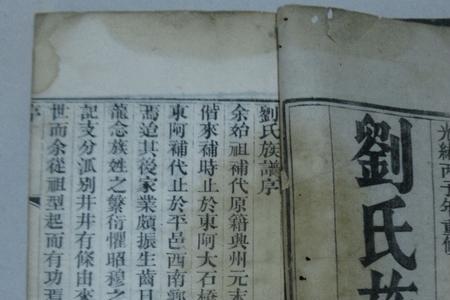 光緒丙子年重修
劉氏族
劉氏族譜序
余始祖補代原籍州元末
偕來補時止於東阿大石橋
東阿補代止於平邑西南鄉
焉迨其後家業頗振生齒日
龍念族姓之繁衍懼昭穆之
記支分派別井井有條由來
世而余從祖型起而有功焉
序